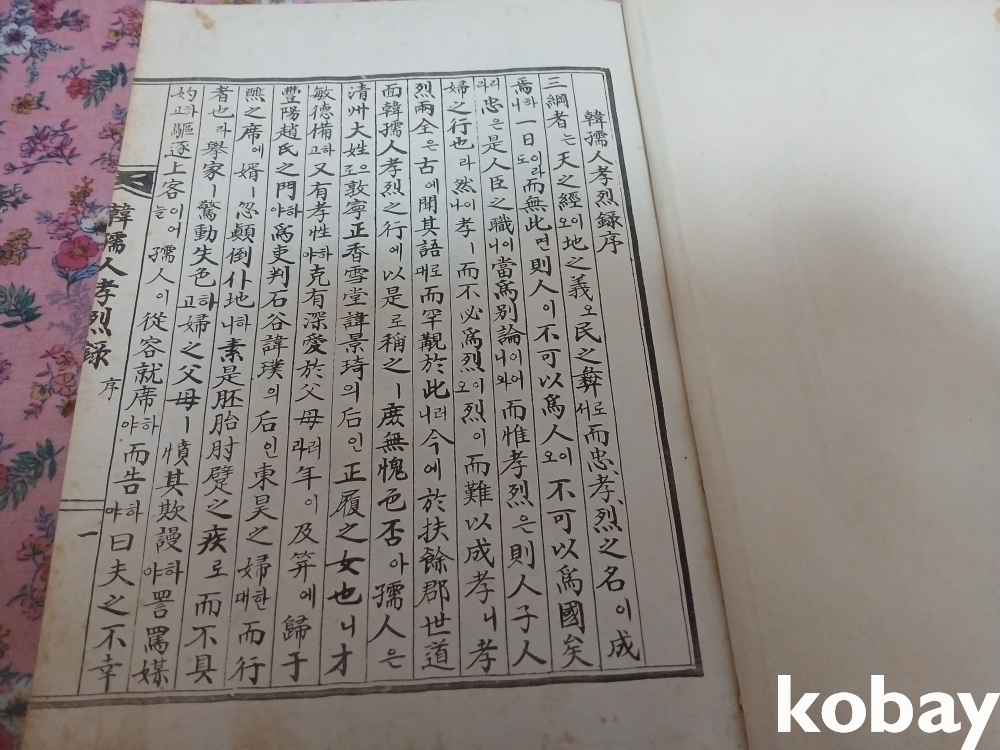 韓孺人孝烈錄序
三綱者는天之經이오地之義오民之彝로서而忠、孝、烈之名이成
焉하니一日이라도而無此면則人이不可以爲人이오不可以爲國矣
리라忠은是人臣之職이니當爲別論이어니와而惟孝烈은則人子人
婦之行也라然이나孝ㅣ而不必爲烈이오烈이而難以成孝니孝
烈兩全은古에聞其語로대而罕覯於此러니今에於扶餘郡世道
面韓孺人孝烈之行에以是로稱之ㅣ庶無愧色否아孺人은
淸州大姓으로敦寧正香雪堂諱景琦의后인正履之女也ㅣ니才
敏德備하고又有孝性하야克有深愛於父母러라年이及笄에歸于
豊陽趙氏之門하야爲吏判石谷諱璞의后인東昊之婦한대而行
醮之席에婿ㅣ忽顚倒仆地하니素是胚胎肘躄之疾로而不具
者也라擧家ㅣ驚動失色하고婦之父母ㅣ憤其欺謾하야詈罵媒
妁하고驅逐上客이어늘孺人이從容就席하야而告하야曰夫之不幸
韓孺人孝烈錄 序 一
kobay